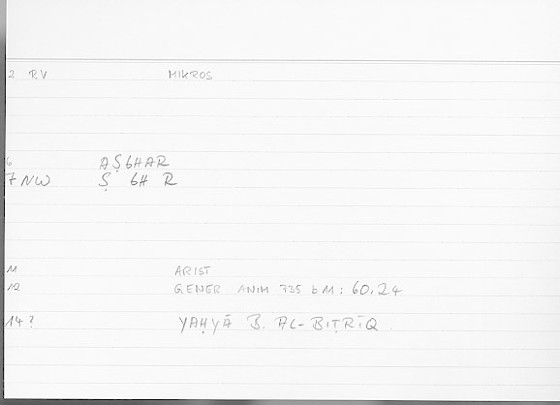 2 RV MIKROS
6 AṢGHAR
7 NW Ṣ GH R
11 ARIST
12 GENER ANIM 735 b 11: 60.24
14? YAḤYĀ B. AL-BIṬRĪQ